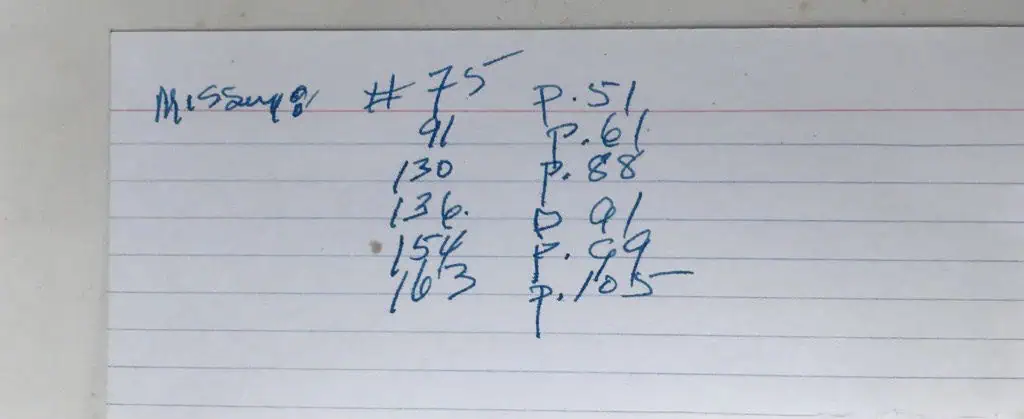 Missing: # 75 p. 51
91 p. 61
130 p. 88
136. p 91
154 p. 99
163 p. 105